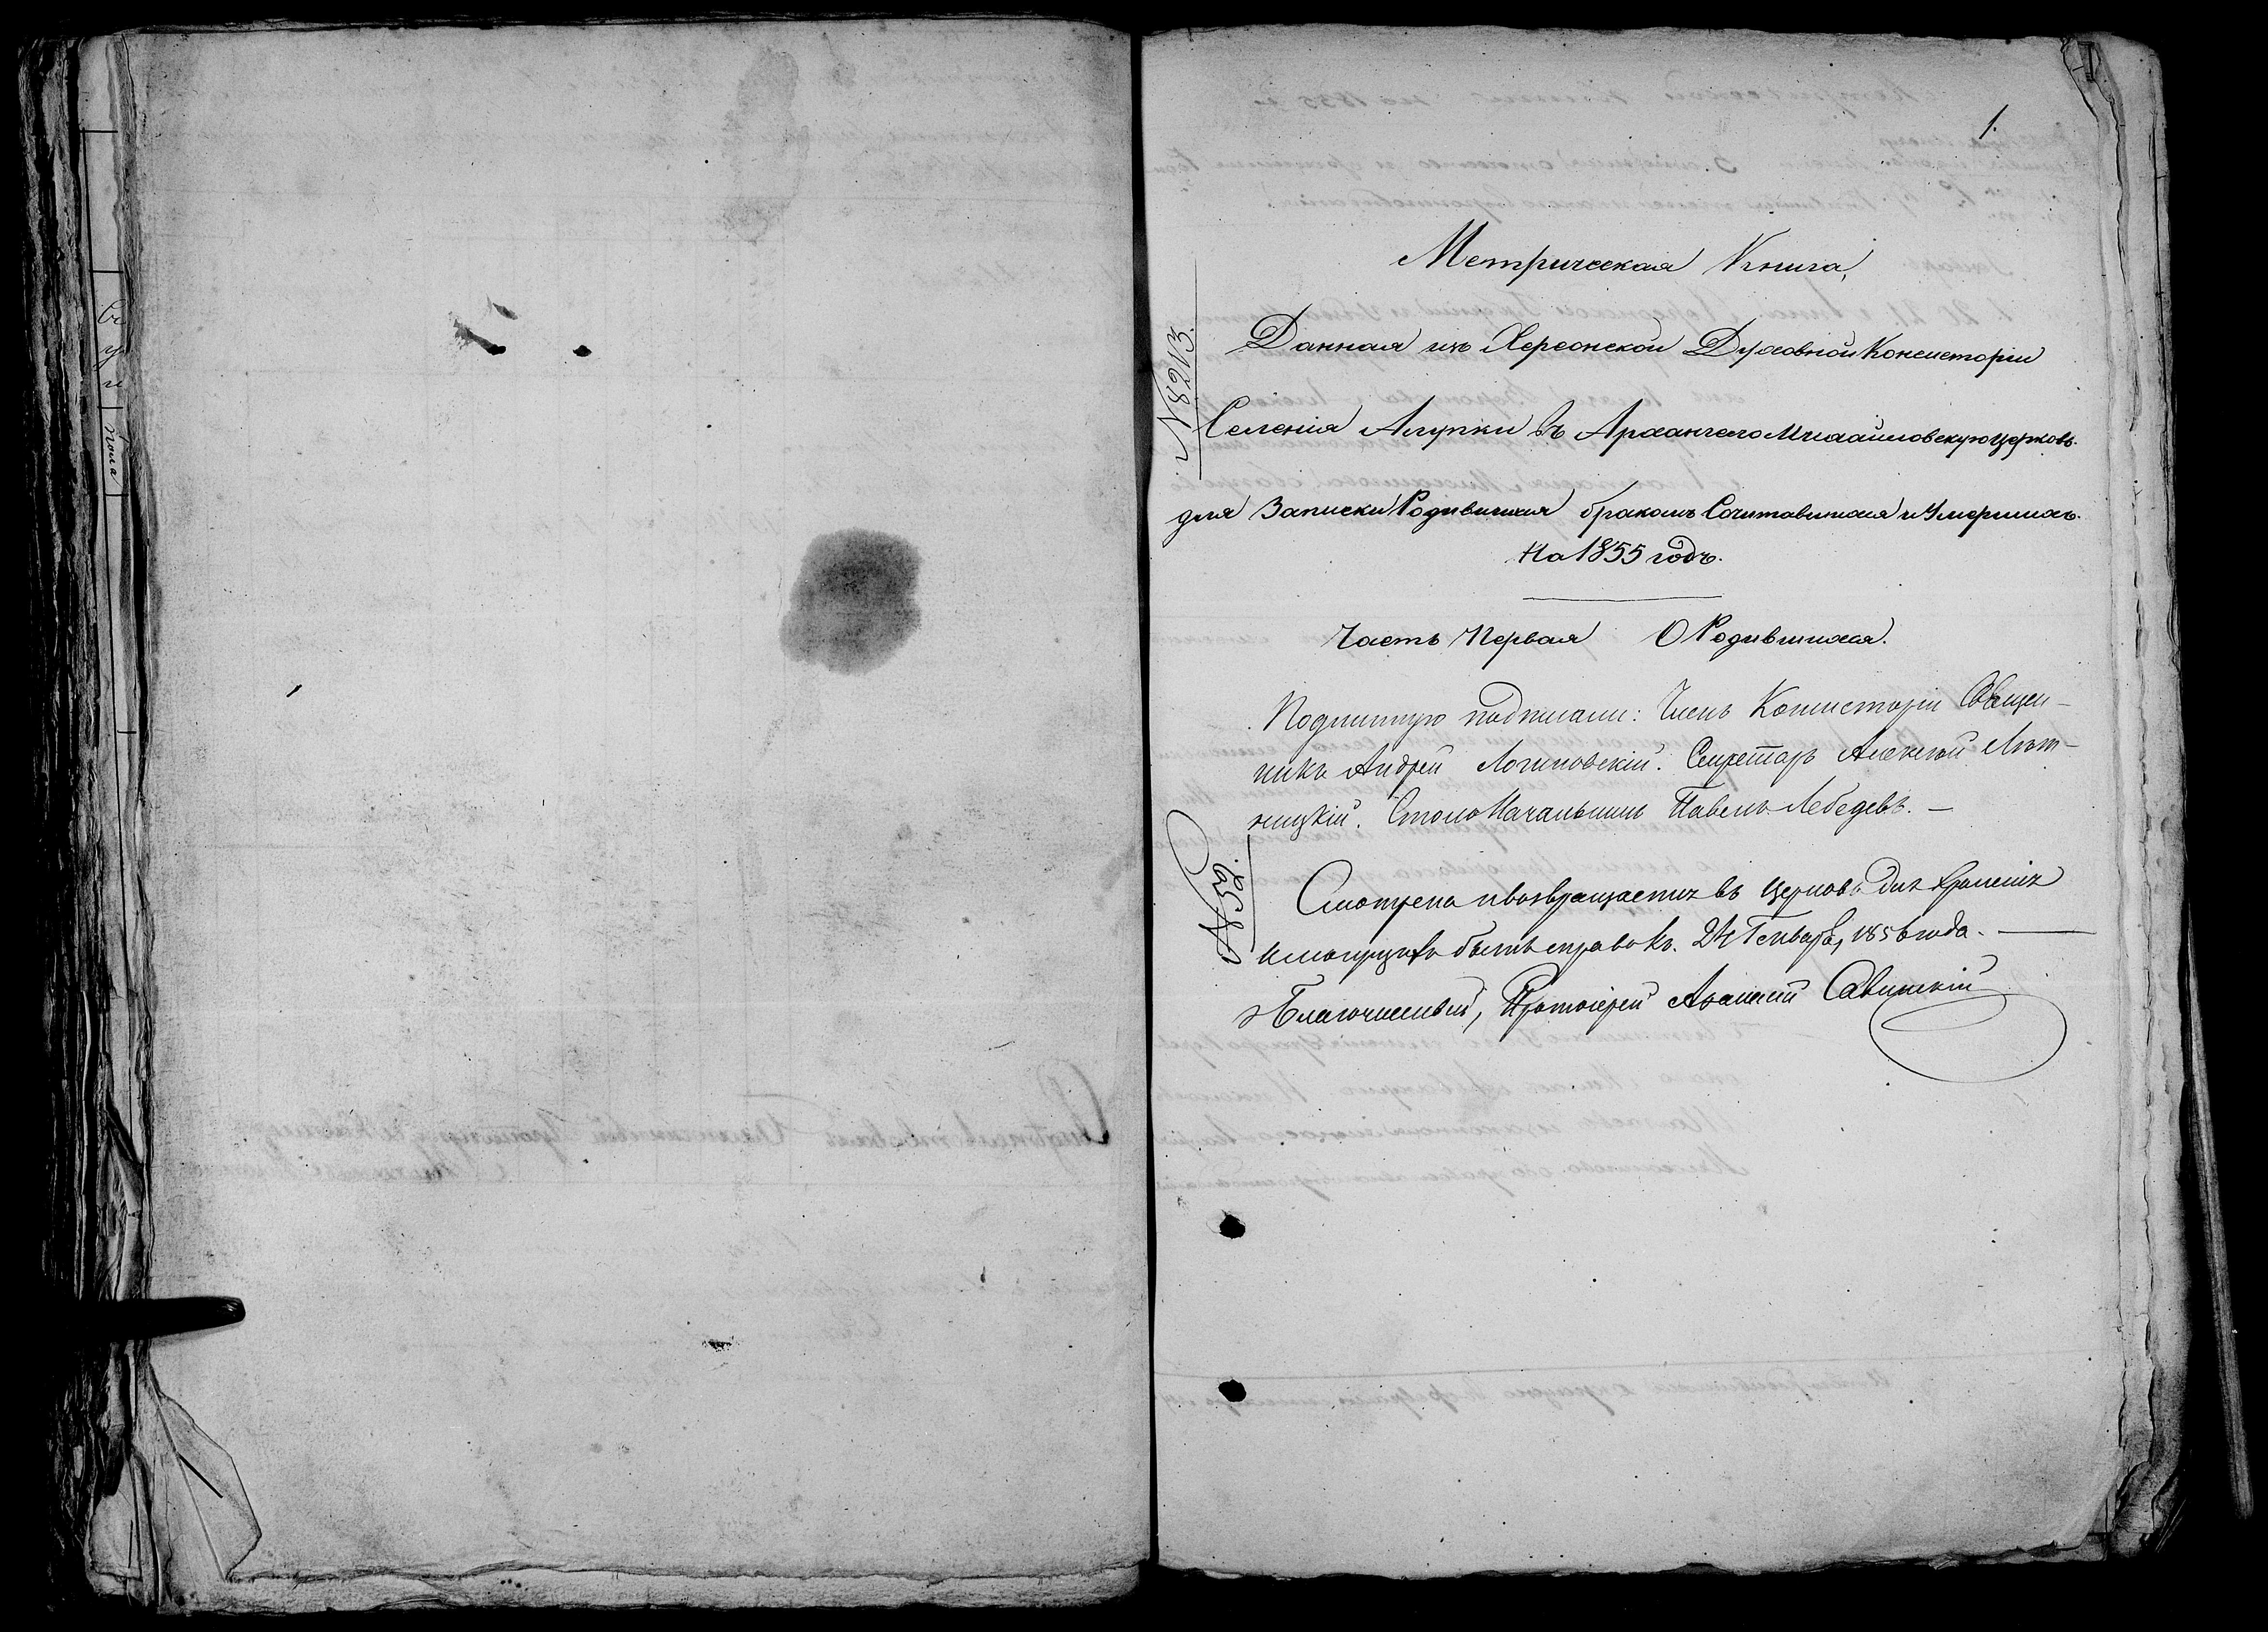 1.
Метрическая Книга,
№ 8213.
Данная изъ Херсонской Духовной Консисторіи
Селенія Алупки въ Архангело Михайловскую церковь.
для Записки Родившихся бракомъ Сочитавшихся и Умершихъ.
На 1855 годъ.
Часть Первая О Родившихся.
Подлинную подписали: Членъ Консисторіи Священ-
никъ Андрей Логиновскій. Секретарь Алексѣй
ницкій. СтолоНачальникъ Павелъ Лебедевъ. —
№ 59.
Смотрена и возвращается въ церковь для храненія
и могущихъ быть справокъ. 24 Генваря, 1856 года. —
Благочинный, Протоіерей
пола